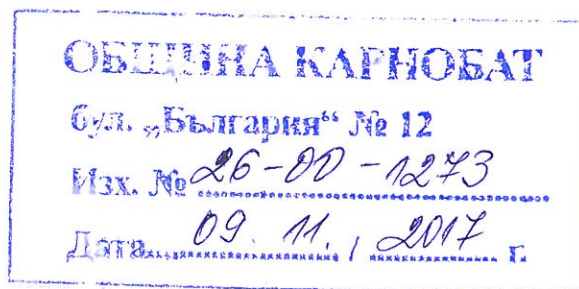 ОБЩИНА КАРНОБАТ
бул. „България“ № 12
Изх. № 26-00-1273
Дата 09. 11. / 2017 г.